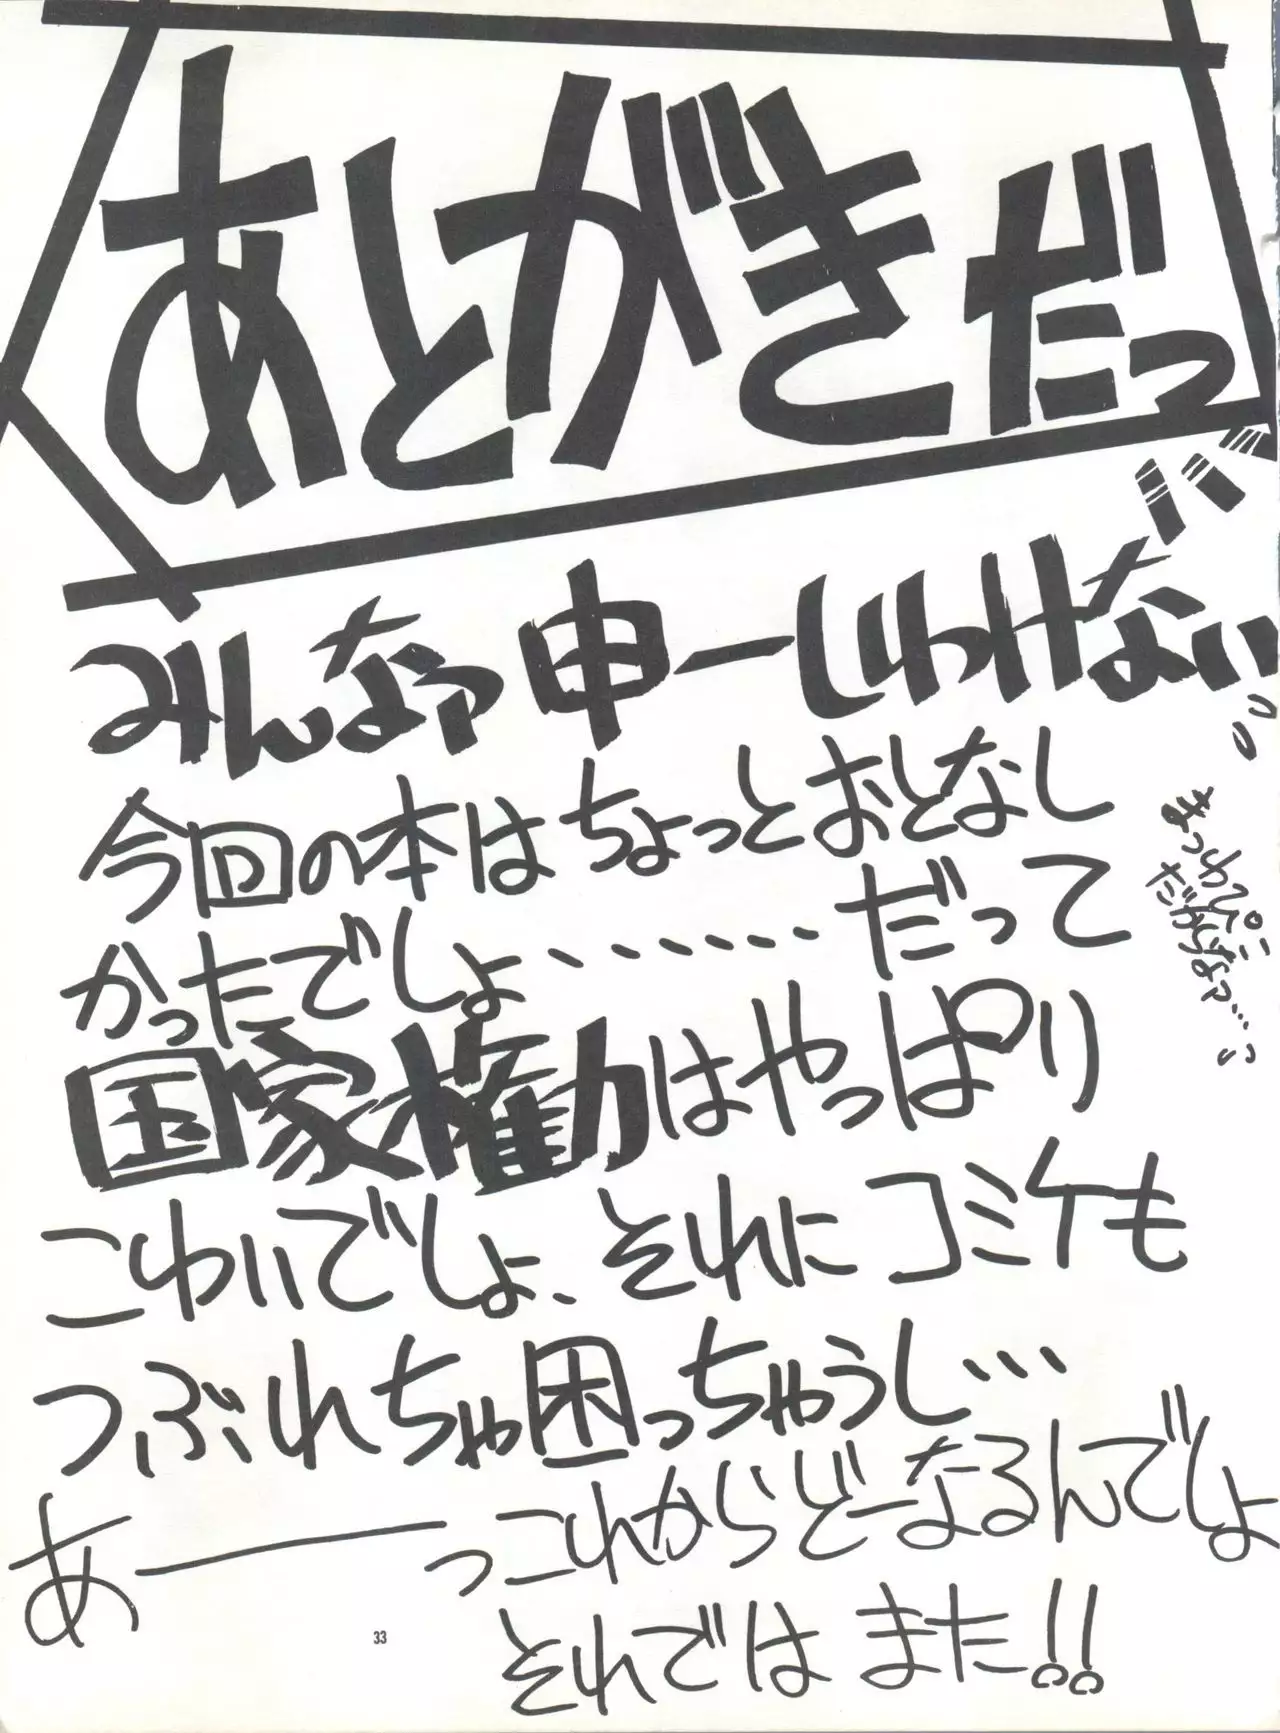 あとがきだっ
みんなァ申ーしわけない
今回の本はちょっとおとなし
かったでしょ・・・・・・・だって
国家権力はやっぱり
こわいでしょ、それにコミケも
つぶれちゃ困っちゃうし…
あ――っこれからどーなるんでしょ
それではまた!!
だからなァ……い
33